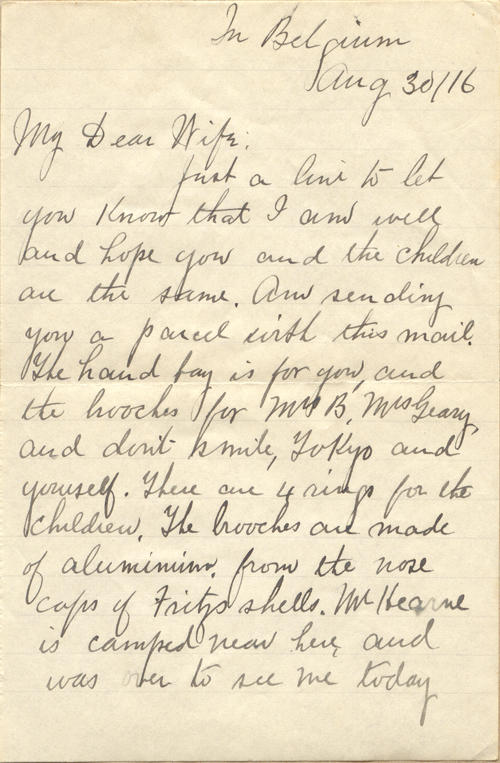 In Belgium
Aug 30/16
My Dear Wife:
Just a line to let
you know that I am well
and hope you and the children
are the same. Am sending
you a parcel with this mail.
The hand bag is for you, and
the brooches for Mrs B, Mrs Geary,
and don't smile, Tokyo and
yourself. There are 4 rings for the
children. The brooches are made
of aluminium, from the nose
caps of Fritzs shells. Mr Hearne
is camped near here, and
was over to see me today